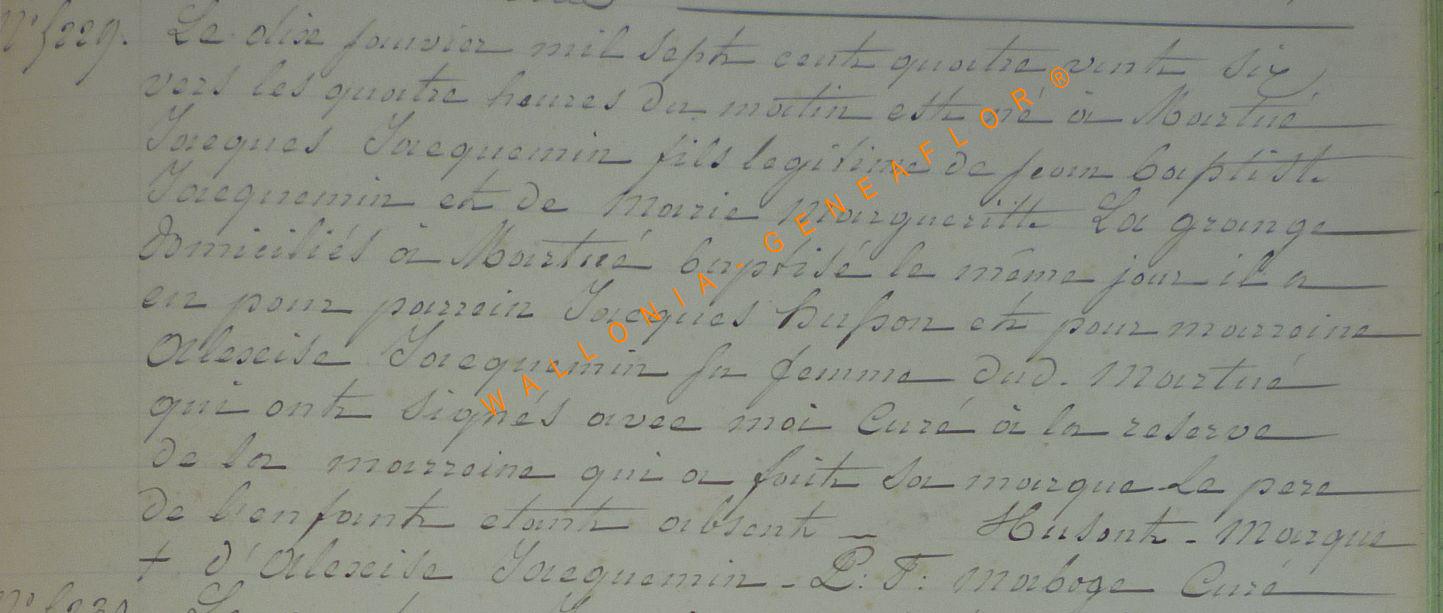 N° 5229. Le dix janvier mil sept cent quatre vint six,
vers les quatre heures du matin est né à Martué
Jacques Jacquemin fils legitime de jean baptiste
Jacquemin et de Marie Margueritte La grange
domiciliés à Martué baptisé le même jour il a
eu pour parrein Jacques husson et pour marreine
Alexise Jacquemin sa femme dud. Martué
qui ont signés avec moi Curé à la reserve
de la marreine qui a fait sa marque Le pere
de l'enfant etant absent _ Husont - Marque
+ d'Alexise Jacquemin - P. F. Maboge Curé
WALLONIA - GENEAFLOR®